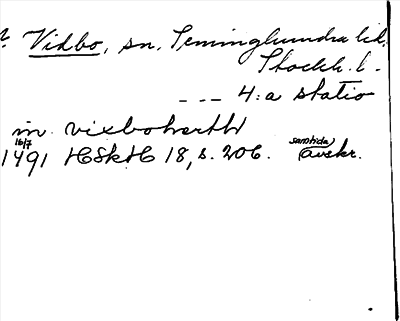 Vidbo, sn, Seminghundra hd,
Stockh. l.
--- 4:a statio
in vixbohærth
16/7
1491 HSkH 18, s. 206. (samtida) avskr.